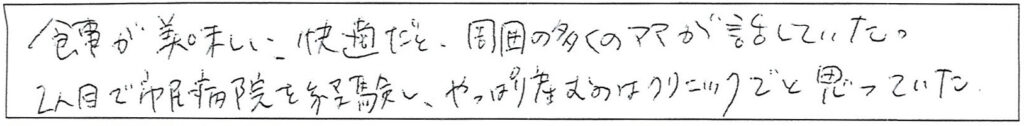 食事が美味しい、快適だと、周囲の多くのママが話していた。
2人目で市民病院を経験し、やっぱり産むのはクリニックでと思っていた